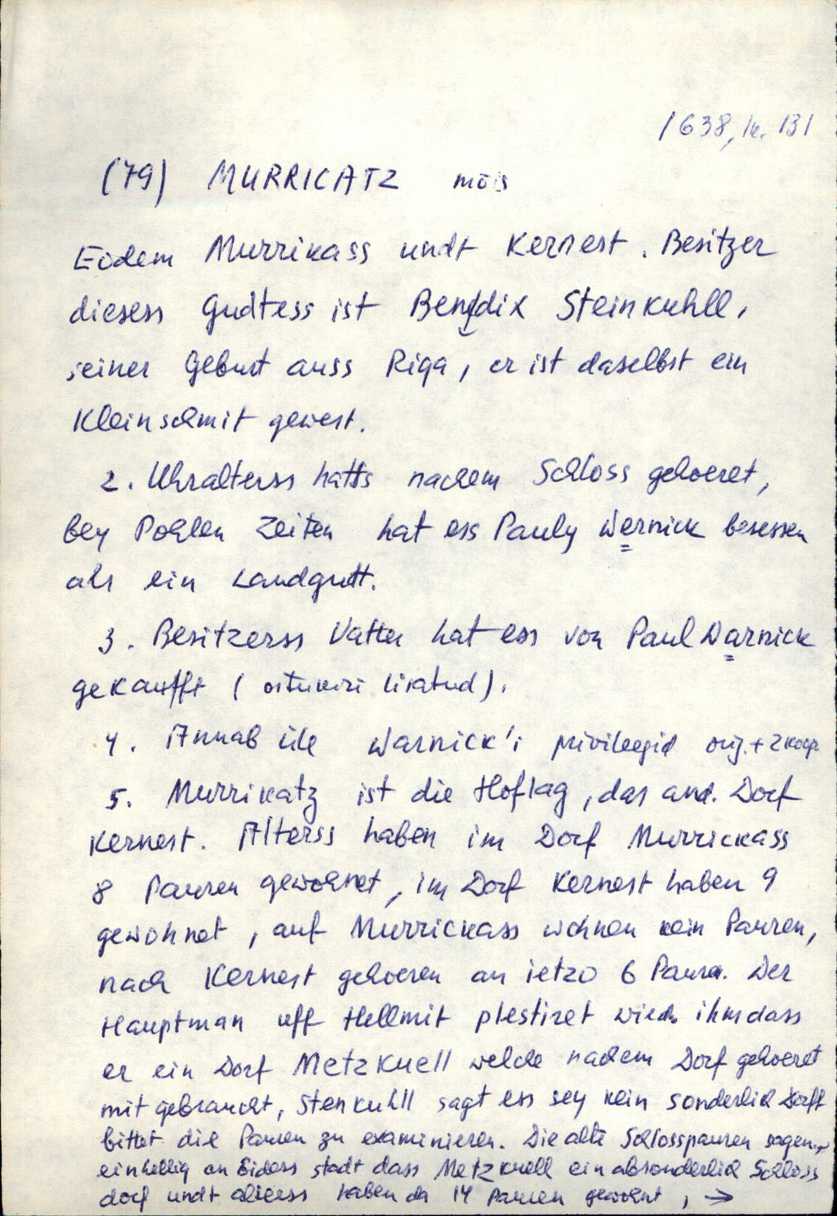 1638, lk. 131
(79) MURRICATZ mõis
Eodem Murrikass undt Kernest. Besitzer
dieses Gudtess ist Bendix Steinkuhll,
seiner Geburt auss Riga, er ist daselbst ein
Kleinschmit gewest.
2. Uhralterss hatts nachem Schloss gehoeret,
bey Pohlen Zeiten hat ess Pauly Wernick besessen
als ein Landgutt.
3. Besitzerss Vatter hat ess von Paul Warnick
gekaufft ( ostukiri lisatud).
4. Annab üle Warnick'i privileegid orig. + 2 koop.
5. Murrikatz ist die Hoflag, das and. Dorf
Kernest. Alterss haben im Dorf Murrickass
8 Pauren gewohnet, im Dorf Kernest haben 9
gewohnet, auf Murrickass wohnen kein Pauren,
nach Kernest gehoeren an ietzo 6 Pauren. Der
Hauptman uff Hellmit ihm dass
er ein Dorf Metzkuell welche nachem Dorf gehoeret
mit gebraucht, Stenkuhll sagt ess sey kein sonderlich Dorff
bittet die Pauren zu examinieren. Die alte Schlosspauren sagen
einhellig an Eidess stadt dass Metzkuell ein absonderlich Schloss
dorf undt alterss haben da 14 Pauren gewohnt, →